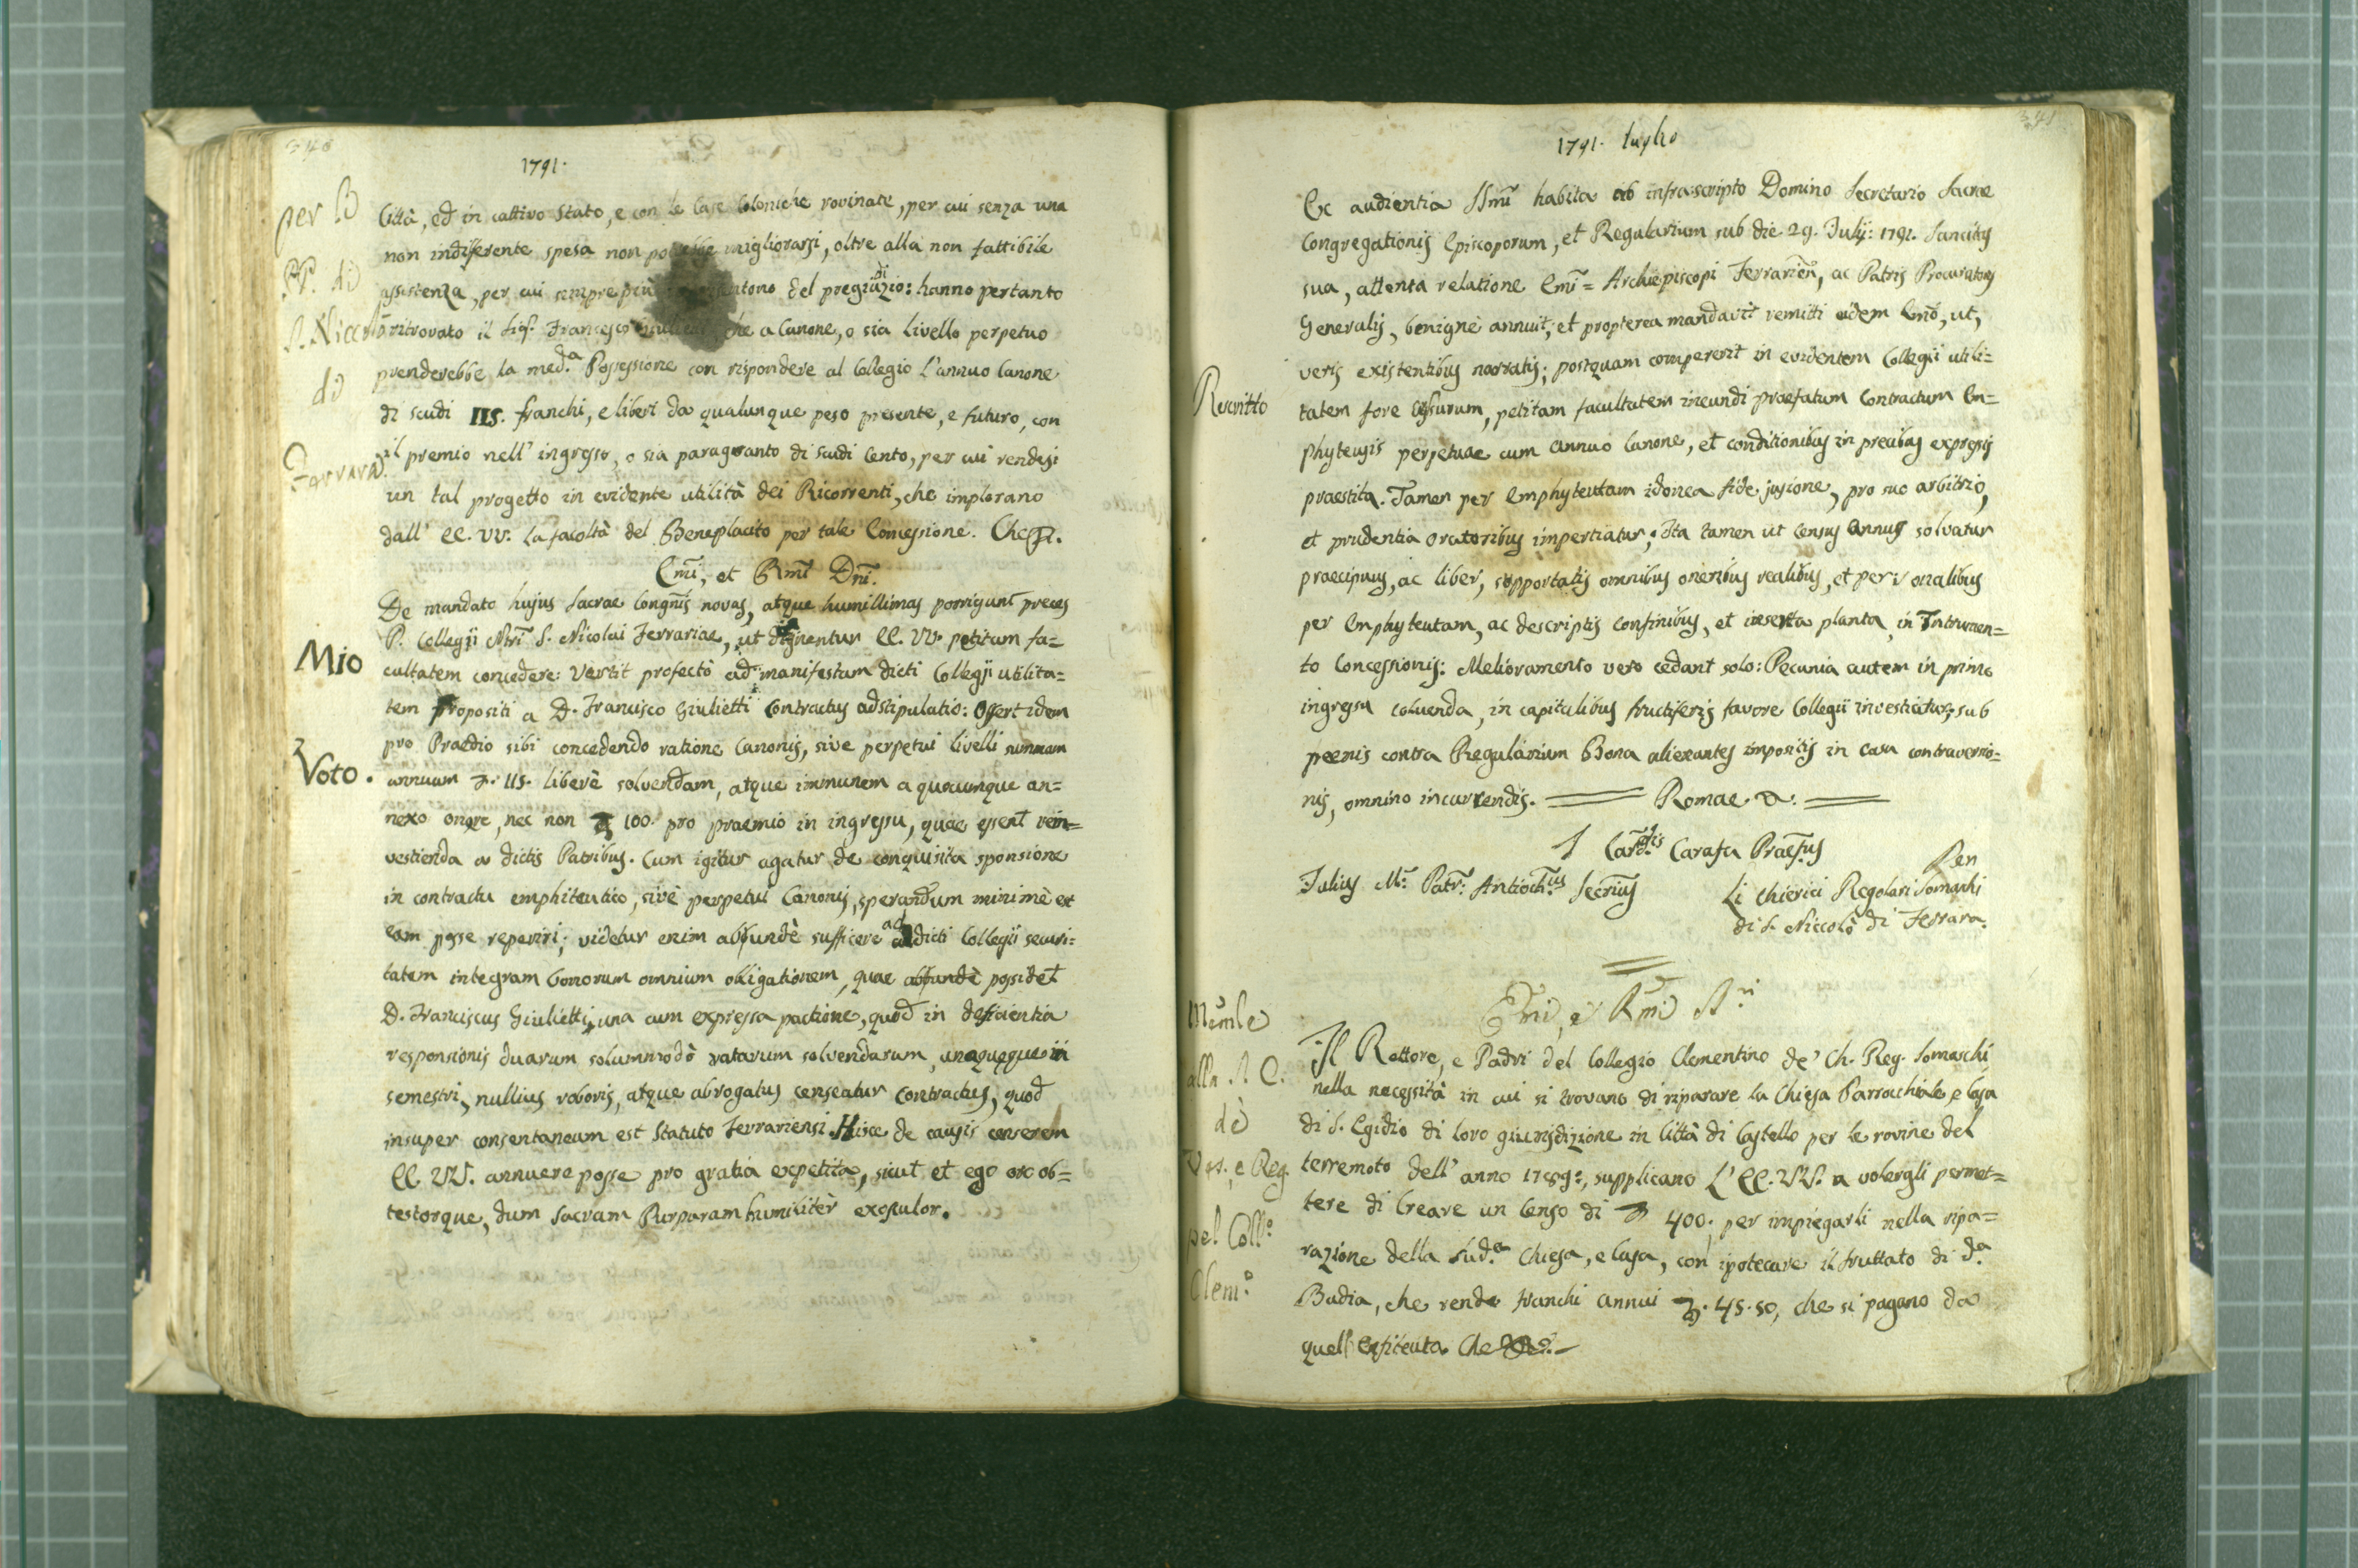 340
1791.
per li
PP. di
S. Niccolò
di
Ferrara.
Città, ed in cattivo stato, e con le Case Coloniche rovinate, per cui senza una
non indiferente spesa non potrebbe migliorarsi, oltre alla non fattibile
assistenza, per cui sempre più del pregiudizio: hanno pertanto
ritrovato il Sig.r Francesco che a Canone, o sia livello perpetuo
prenderebbe la med.a Possessione con rispondere al Collegio l'annuo Canone
di scudi 115. franchi, e liberi da qualunque peso presente, e futuro, con
il premio nell' ingresso, o sia paraguanto di scudi Cento, per cui rendesi
un tal progetto in evidente utilità dei Ricorrenti, che implorano
dall' EE. VV. la facoltà del Beneplacito per tale Concessione. Che
Emi, et Rmi Dni.
Mio
Voto.
De mandato hujus Sacrae Congnis novas, atque humillimas porrigunt preces
P. Collegii Nri S. Nicolai Ferrariae, ut dignentur EE. VV. petitam fa=
cultatem concedere: Vertit profectò ad manifestam dicti Collegii utilita=
tem propositi a D. Francisco Giulietti Contractus adstipulatio: Offert idem
pro Praedio sibi concedendo ratione Canonis, sive perpetui livelli summam
annuam 115. liberè solvendam, atque immunem a quocumque an=
nexo onere, nec non 100. pro praemio in ingressu, quae essent rein=
vestienda a dictis Patribus. Cum igitur agatur de conquisita sponsione
in contractu emphiteutico, sivè perpetui Canonis, sperandum minimè est
eam posse reperiri; videtur enim abundè sufficere ad dicti Collegii securi=
tatem integram bonorum omnium obligationem, quae abundè possidet
D. Franciscus Giulietti, una cum expressa pactione, quod in deficientia
responsionis duarum solummodò ratarum solvendarum, unaquaque in
semestri, nullius roboris, atque abrogatus censeatur contractus, quod
insuper consentaneum est Statuto Ferrariensi. Hisce de causis censerem
EE. VV. annuere posse pro gratia expetita, sicut et ego oro ob=
testorque, dum Sacram Purpuram humilitèr exosculor.
341
1791. luglio
Rescritto
Ex audientia SSmi habita ab infrascripto Domino Secretario Sacrae
Congregationis Episcoporum, et Regularium sub die 29. Julij: 1791. Sanctitas
sua, attenta relatione Emi= Archiepiscopi Ferrarien, ac Patris Procuratoris
Generalis, benignè annuit, et propterea mandavit remitti eidem Emo, ut,
veris existentibus narratis; postquam compererit in evidentem Collegii utili=
tatem fore cessurum, petitam facultatem ineundi praefatum Contractum Em=
phyteusis perpetuae cum annuo Canone, et conditionibus in precibus expressis
praestita. Tamen per Emphyteutam idonea fide jusione, pro suo arbitrio,
et prudentia Oratoribus impertiatur; Ita tamen ut Census annus solvatur
praecipuus, ac liber, supportatis omnibus oneribus realibus, et personalibus
per Emphyteutam, ac descriptis confinibus, et inserta planta, in Intrumen=
to Concessionis: Melioramento vero cedant solo: Pecunia autem in primo
ingressu solvenda, in capitalibus fructiferis favore Collegii investiatur; sub
poenis contra Regularium Bona alienantes impositis in casu contraventio=
nis, omnino incurrendis. Romae
Cardlis Carafa Praefus
Julius M. Patr: Antioch.us Secrius
Per
Li Chierici Regolari Somaschi
di S. Niccolò di Ferrara.
Emi, e Rmi S.ri
Memle
alla S. C.
de'
Ves. e Reg.
pel Coll.o
Clem.o
Il Rettore, e Padri del Collegio Clementino de' Ch. Reg. Somaschi
nella necessità in cui si trovano di riparare la Chiesa Parrocchiale, e Casa
di S. Egidio di loro giurisdizione in Città di Castello per le rovine del
terremoto dell' anno 1789:, supplicano l' EE. VV. a volergli permet=
tere di Creare un Censo di 400. per impiegarli nella ripa=
razione della sud.a Chiesa, e Casa, con ipotecare il fruttato di d.a
Badia, che rende franchi annui 45.50, che si pagano da
quell' Enfiteuta. Che